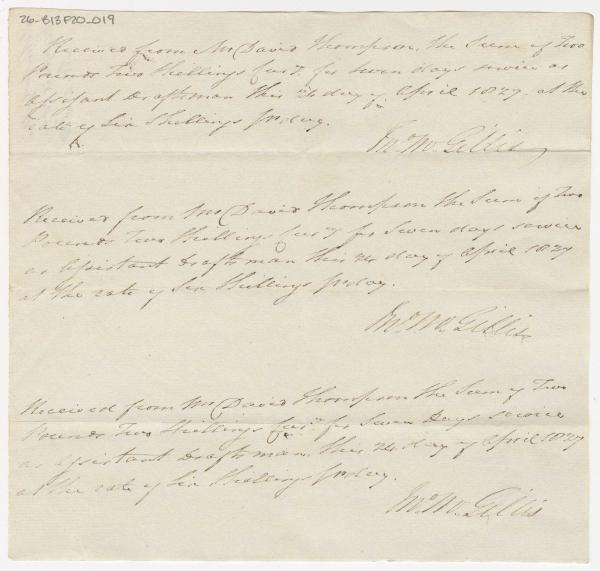 26-B13F20-019
Received from Mr David Thompson, the Sum of Two
Pounds Two Shillings Curr.y for Seven days service as
assistant Draftsman this 24 day of April 1827. at the
rate of Six Shillings pr day.
Jno. McGillis
Received from Mr David Thompson the Sum of Two
Pounds Two Shillings Curr.y for Seven days service
as assistant Draftsman this 24 day of April 1827
at the rate of Six Shillings pr day.
Jno. McGillis
Received from Mr David Thompson the Sum of Two
Pounds Two Shillings Curr.y for Seven Days service
as assistant Draftsman, this 24 day of April 1827
at the rate of Six Shillings pr day.
Jno. McGillis